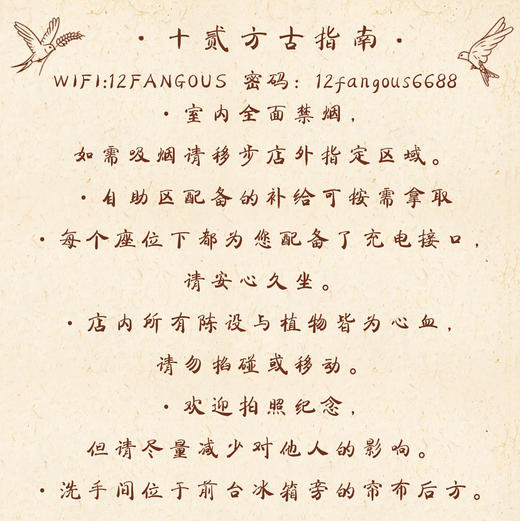 ·十贰方古指南·
WIFI:12FANGOUS 密码：12fangous6688
·室内全面禁烟，
如需吸烟请移步店外指定区域。
·自助区配备的补给可按需拿取
·每个座位下都为您配备了充电接口，
请安心久坐。
·店内所有陈设与植物皆为心血，
请勿掐碰或移动。
·欢迎拍照纪念，
但请尽量减少对他人的影响。
·洗手间位于前台冰箱旁的帘布后方。